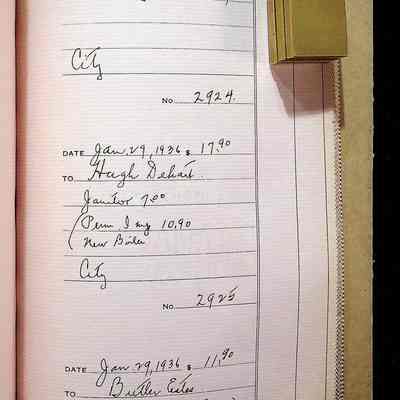 City
No. 2924.
DATE Jan. 29, 1936 $ 17.90
TO Hugh
Janitor 7.00
(Perm I 10.90
New Boiler
City
No. 2925
DATE Jan. 29, 1936 $ 11.90
TO Butler Estes